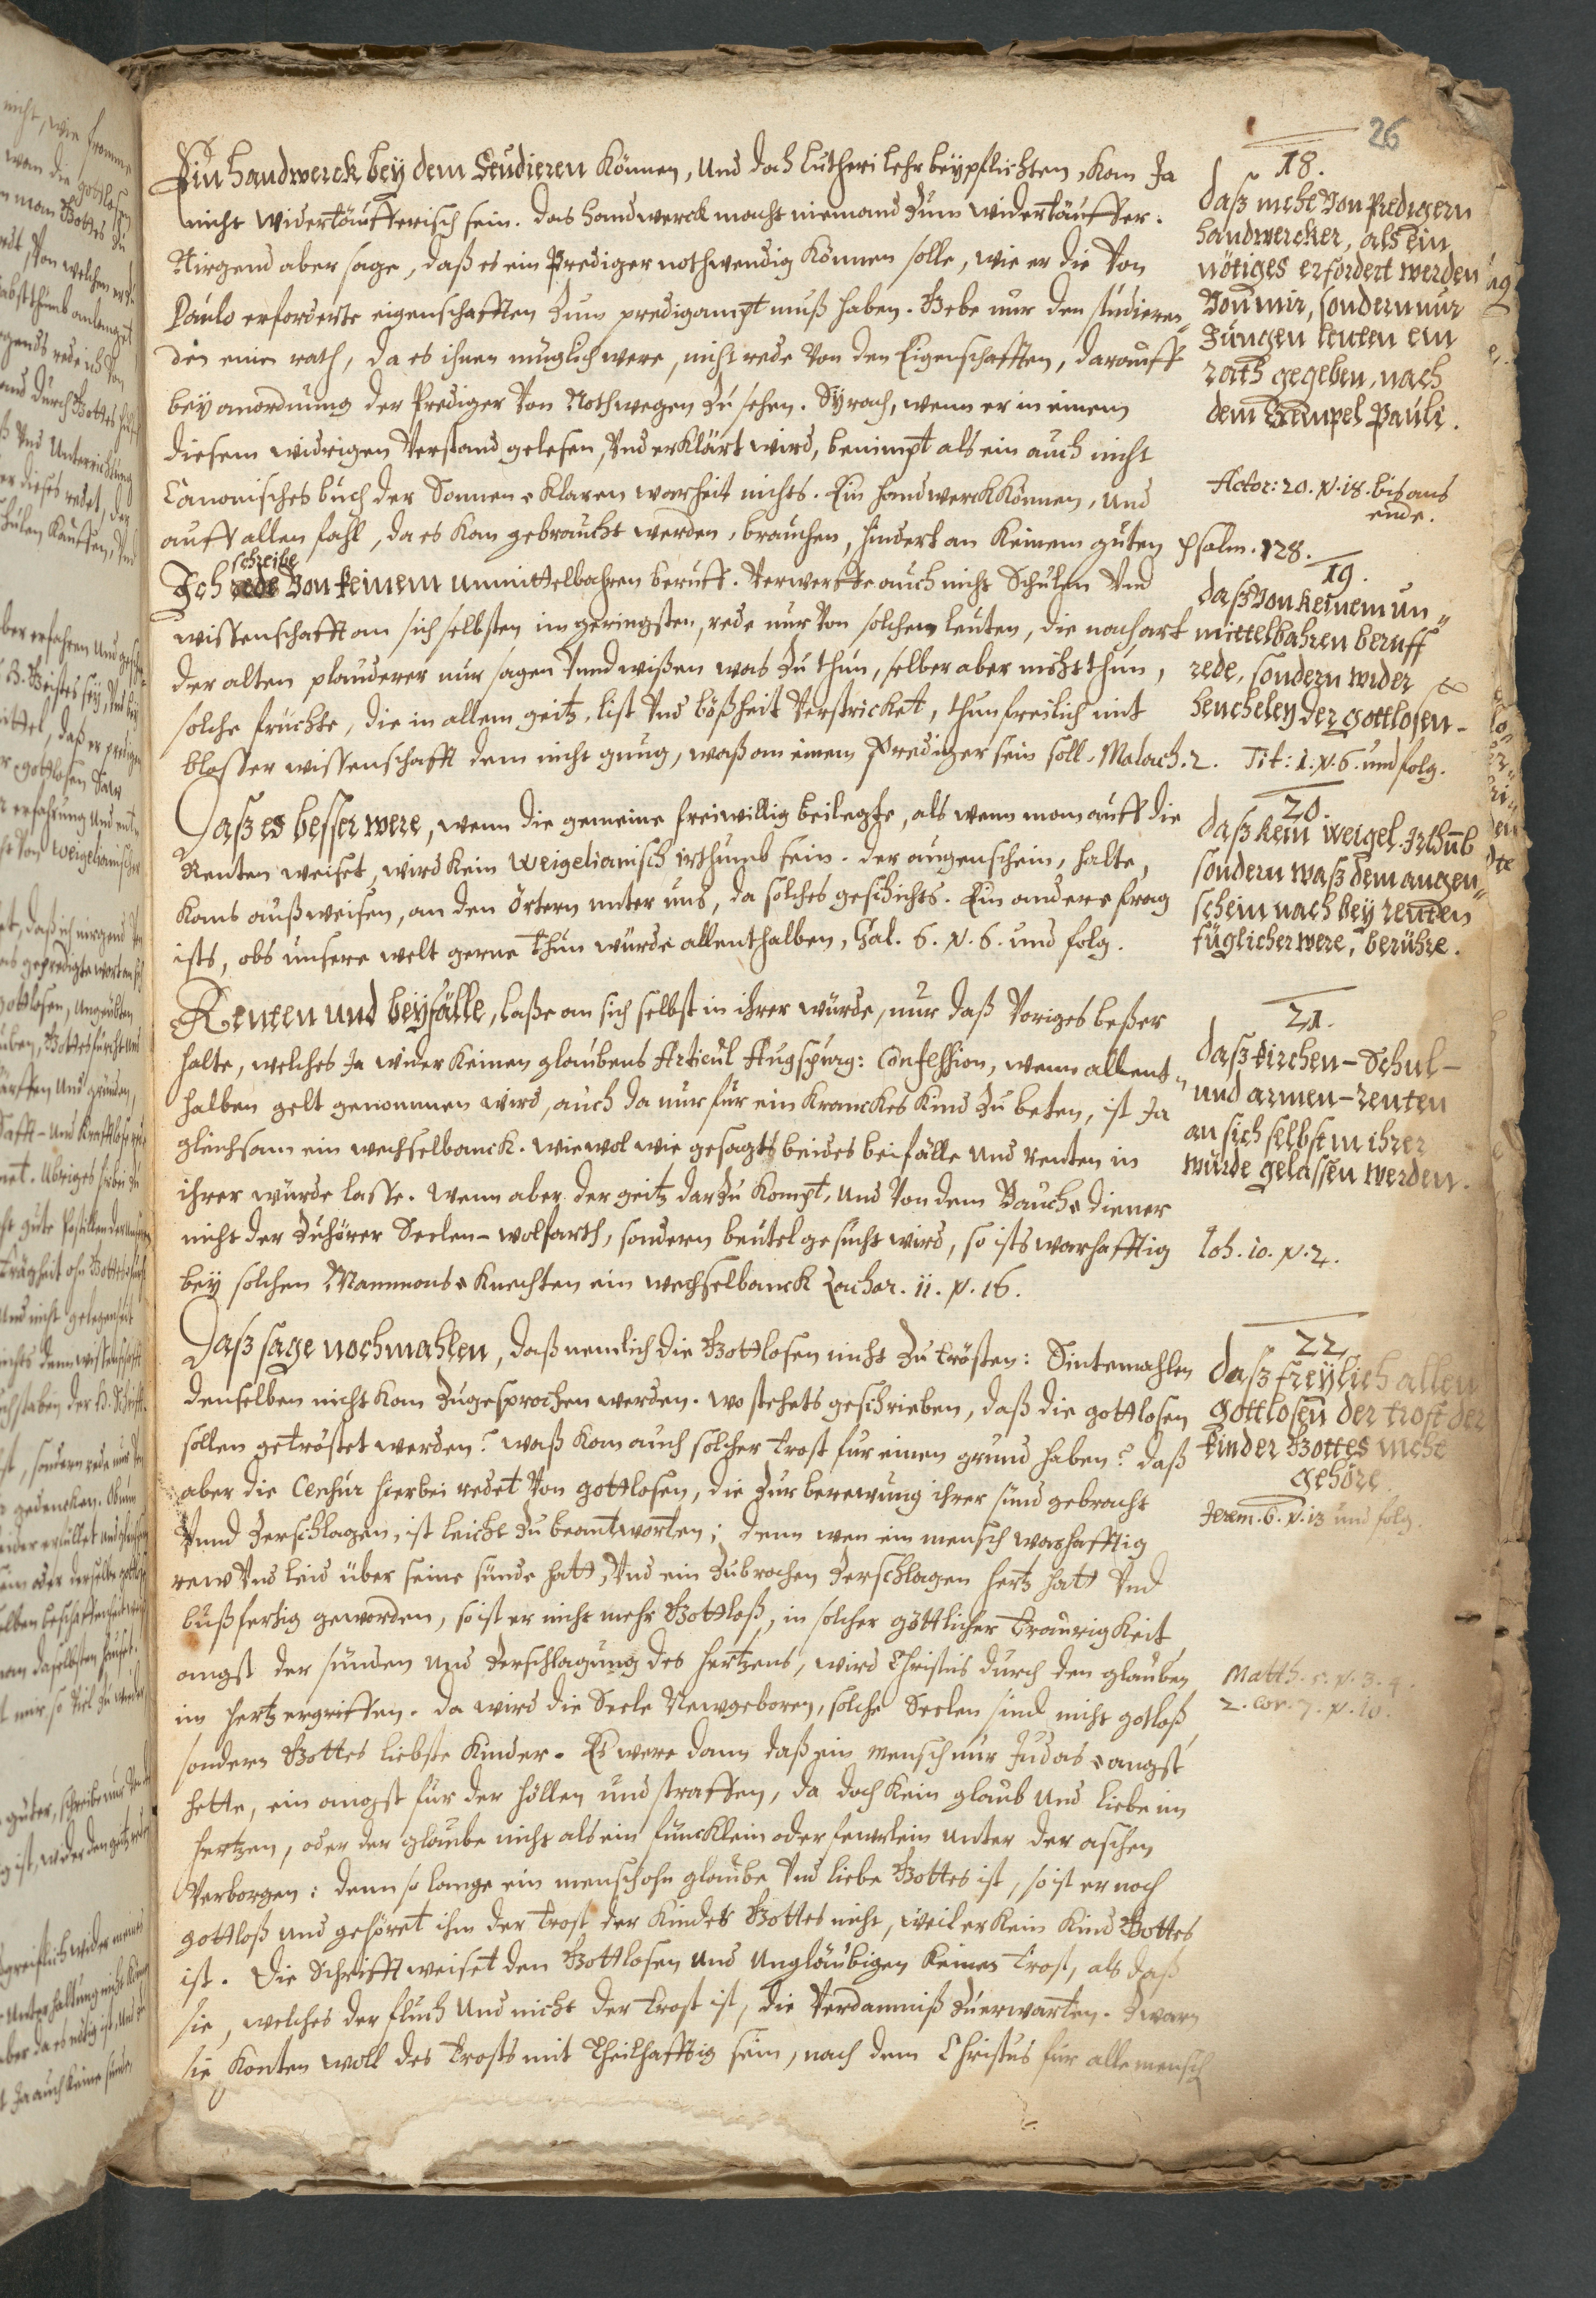 26
Ein handwerck bey dem Studieren Können, Und doch Lutheri lehr beypflichten, Kan Ja
nicht widertäufferisch sein. das handwerck macht niemand Zum widertäuffer.
Nirgend aber sage, daß es ein Prediger nothwendig Können solle, wie er die Von
Paulo erforderte eigenschafften Zum predigampt muß haben. Gebe nur den studieren„
den einen rath, da es ihnen müglich were, nicht rede Von den Eigenschafften, darauff
bey anordnung der Prediger Von Nothwegen Zu sehen. Syrach, wenn er in einem
diesem widrigen Verstand gelesen, Vnd erKlärt wird, benimpt als ein auch nicht
Canonisches buch der Sonnen=Klaren warheit nichts. Ein handwerck Können, Und
auff allen fahl, da es Kan gebraucht werden, brauchen, hindert an Keinem guten Psalm. 128.
18.
daß nicht Von Predigern
handwercker, als ein
nötiges erfordert werden
Von mir, sondern nur
Jungen leuten ein
rath gegeben, nach
dem Exempel Pauli.
Actor: 20. v. 18. bis ans
ende.
schreibe
Ich rede Von keinem unmittelbahren beruff. Verwerffe auch nicht Schulen Vnd
wissenschafft an sich selbsten im geringsten, rede nur Von solchen leuten, die nach art
der alten plauderer nur sagen Vnnd wißen was Zu thun, selber aber nicht thun,
solche früchte, die in allem geitz, list Vnd boßheit Verstricket, thun freilich mit
blosser wissenschafft dem nicht gnug, waß an einem Prediger sein soll. Malach. 2.
19.
daß Von keinem un„
mittelbahren beruff
rede, sondern wider
heucheley der gottlosen
Tit: 1. v. 6. und folg.
Daß es besser were, wenn die gemeine freiwillig beilegte, als wenn man auff die
Renten weiset, wird kein Weigelianisch irthumb sein. der augenschein, halte,
Kans außweisen, an den örtern unter uns, da solches geschicht. Ein andere frag
ists, obs unsere welt gerne thun würde allenthalben, Gal. 6. v. 6. und folg.
20.
daß kein Weigel. Irthūb
sondern waß dem augen„
schein nach bey renten
füglicher were, berühre.
Renten und beyfälle, laße an sich selbst in ihrer würde, nur daß Voriges beßer
halte, welches Ja wider Keinen glaubens Articul Augspurg: Confession, wenn allent„
halben gelt genommen wird, auch da nur für ein Kranckes Kind Zu beten, ist Ja
gleichsam ein wechselbanck. wiewol wie gesagt beides beifälle und renten in
ihrer würde lasse. Wenn aber der geitz darZu Kompt, und Von dem Bauch=diener
nicht der Zuhörer Seelen-wolfarth, sondern beutel gesucht wird, so ists warhafftig
bey solchen Mammons=Knechten ein wechselbanck Zachar. 11. v. 16.
21.
daß kirchen-Schul-
und armen-renten
an sich selbst in ihrer
würde gelassen werden.
Joh. 10. v. 2.
Daß sage nochmahlen, daß nemlich die Gottlosen nicht Zu trösten: Sintemahlen
denselben nicht Kan Zugesprochen werden. wo stehets geschrieben, daß die gottlosen
sollen getröstet werden? waß Kan auch solcher trost für einen grund haben? daß
aber die Censur hierbei redet Von gottlosen, die Zur berewung ihrer sünd gebracht
Vnnd Zerschlagen, ist leicht Zu beantworten; denn wen ein mensch warhafftig
rew Vnd leid über seine sünde hatt, Vnd ein Zubrochen Zerschlagen hertz hatt Vnd
bußfertig geworden, so ist er nicht mehr Gottloß, in solcher göttlicher traurigKeit
angst der sünden und Zerschlagung des hertzens, wird Christus durch den glauben
im hertz ergriffen. da wird die Seele Newgeboren, solche Seelen sind nicht gotloß
sondern Gottes liebste Kinder. Es were dann daß ein mensch nur Judas=angst
hette, ein angst für der höllen und straffen, da doch Kein glaub und liebe im
hertzen, oder der glaube nicht als ein füncklein oder fewrlein unter der aschen
Verborgen: denn so lange ein mensch ohn glaube Vnd liebe Gottes ist, so ist er noch
gottloß und gehöret ihm der trost der Kinder Gottes nicht, weil er Kein Kind Gottes
ist. Die Schrifft weiset den Gottlosen und Ungläubigen Keinen trost, als daß
sie, welches der fluch und nicht der trost ist, die Verdamniß Zuerwarten. Zwar
sie Konten woll des trosts mit theilhafftig sein, nach dem Christus für alle mensch
22.
daß freylich allen
Gottlosen der trost der
kinder Gottes nicht
gehöre.
Jerem. 6. v. 13 und folg.
Matth. 5. v. 3. 4.
2. Cor. 7. v. 10.